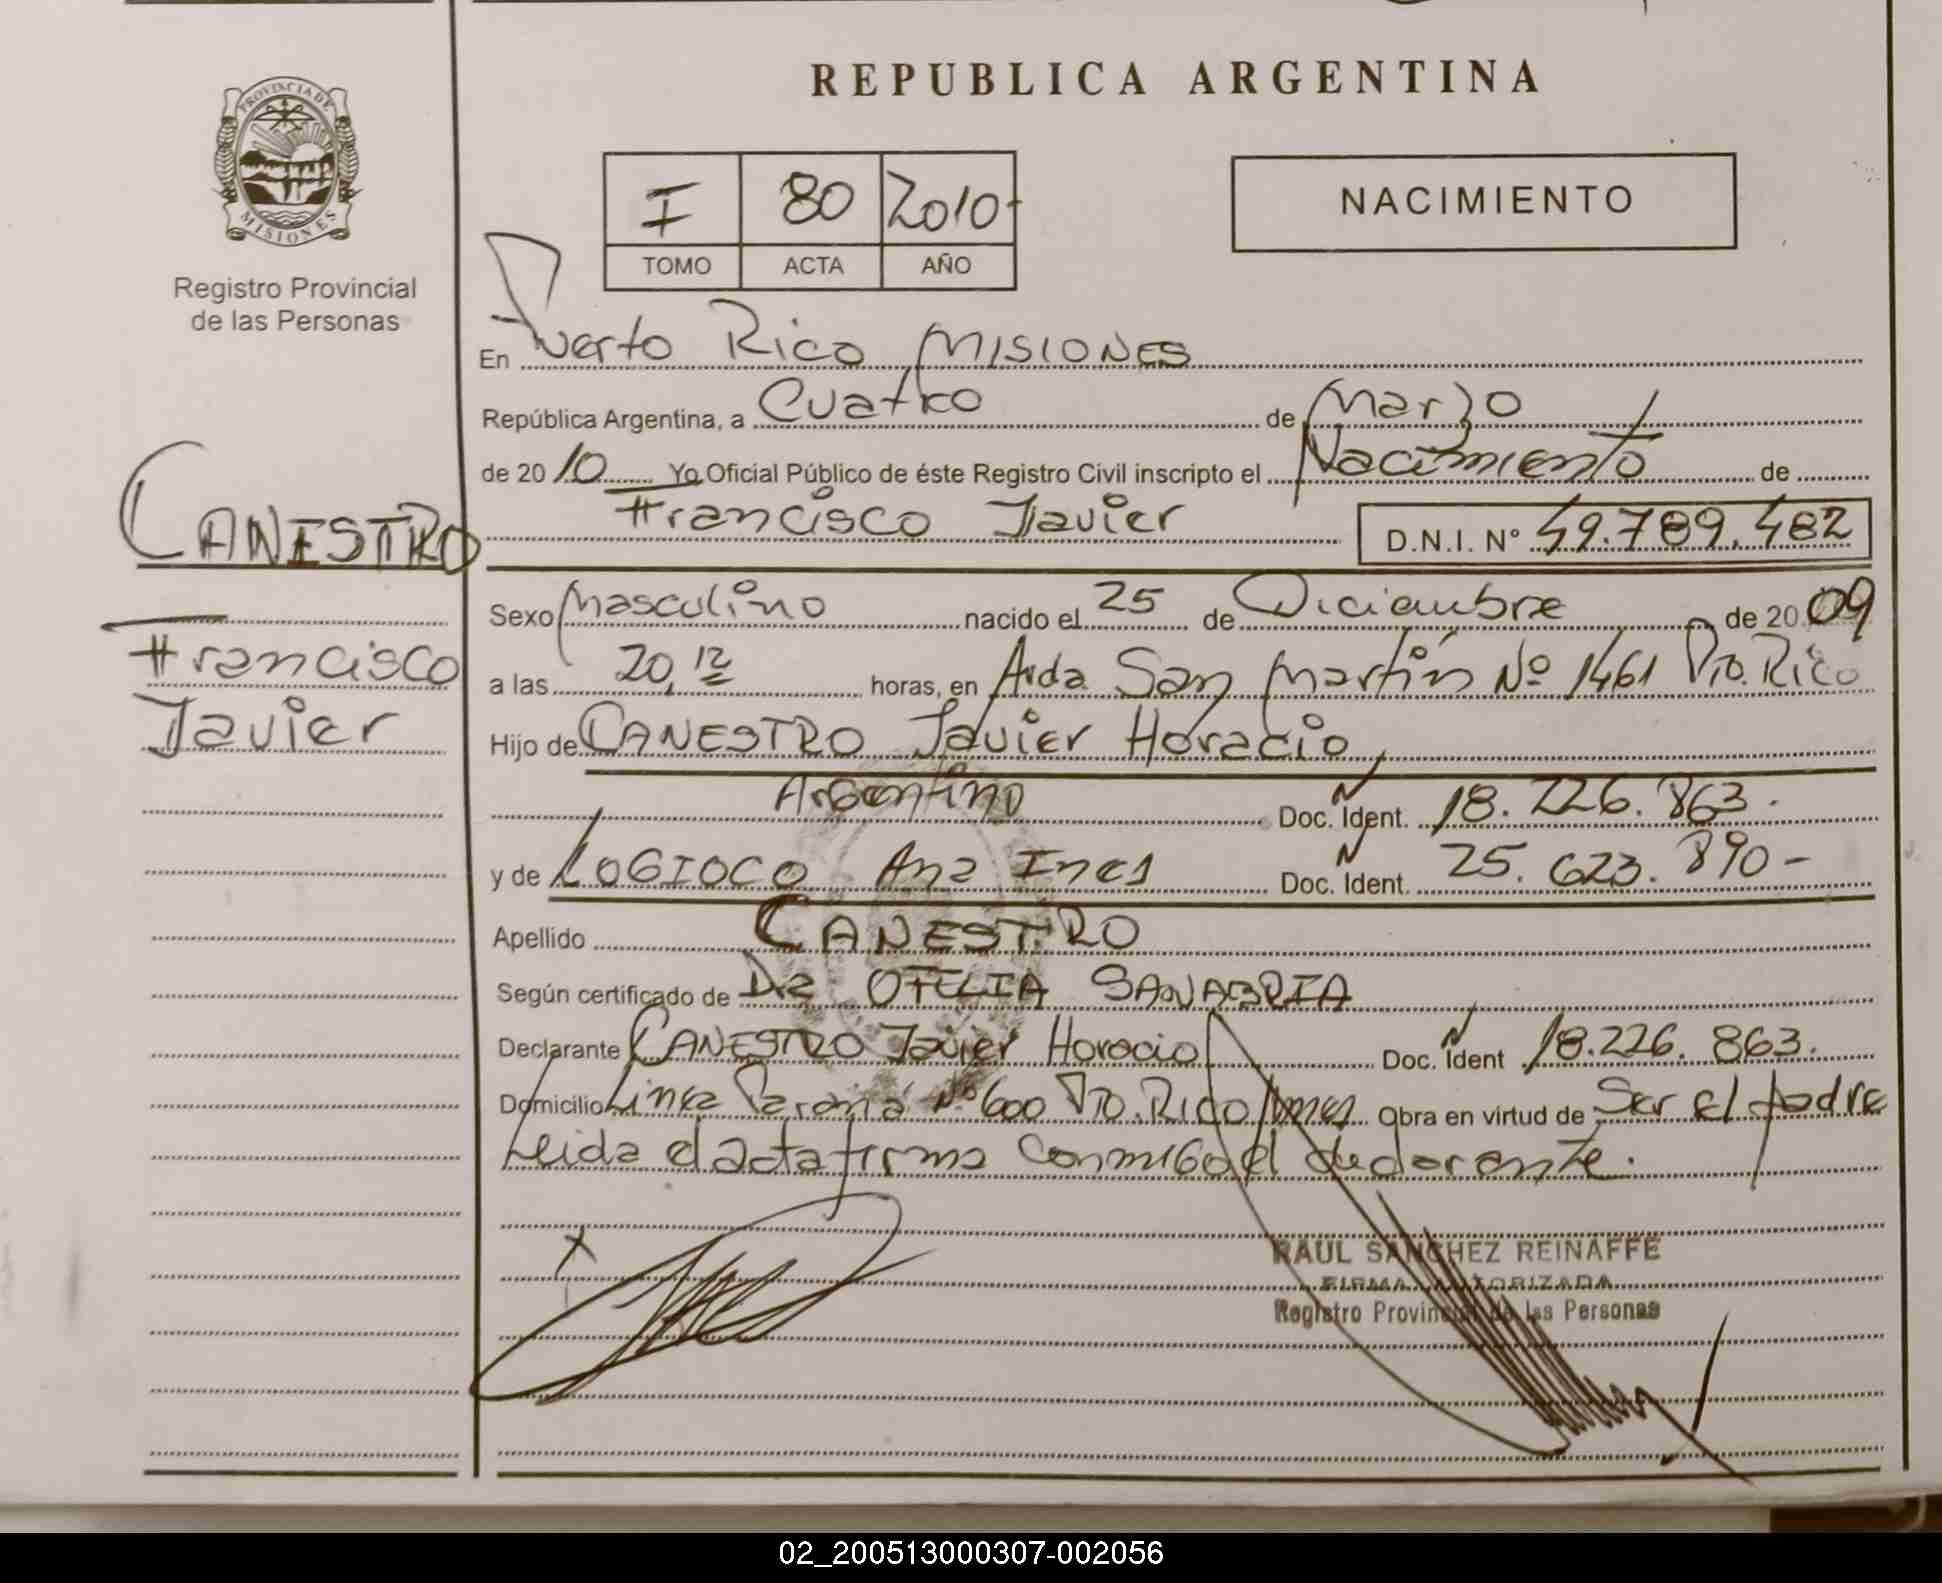 REPUBLICA ARGENTINA
PROVINCIA DE
MISIONES
Registro Provincial
de las Personas
I 80 2010
TOMO ACTA AÑO
NACIMIENTO
En Puerto Rico Misiones
República Argentina, a Cuatro de Marzo
de 20 10 Yo Oficial Público de éste Registro Civil inscripto el Nacimiento de
Francisco Javier D.N.I. Nº 49.789.482
CANESTRO
Francisco
Javier
Sexo Masculino nacido el 25 de Diciembre de 20 09
a las 20,12 horas, en Avda San Martín Nº 1461 Pto. Rico
Hijo de CANESTRO Javier Horacio,
Argentino Doc. Ident. 18.226.863.
y de LOGIOCO Ana Ines Doc. Ident. 25.623.890-
Apellido CANESTRO
Según certificado de Dra OFELIA SANABRIA
Declarante CANESTRO Javier Horacio Doc. Ident 18.226.863.
Domicilio Linea Paraná Nº 600 Pto. Rico Mnes Obra en virtud de Ser el padre
Leida el acta firma conmigo el declarante.
X
RAUL SANCHEZ REINAFFE
FIRMA AUTORIZADA
Registro Provincial de las Personas
02_200513000307-002056